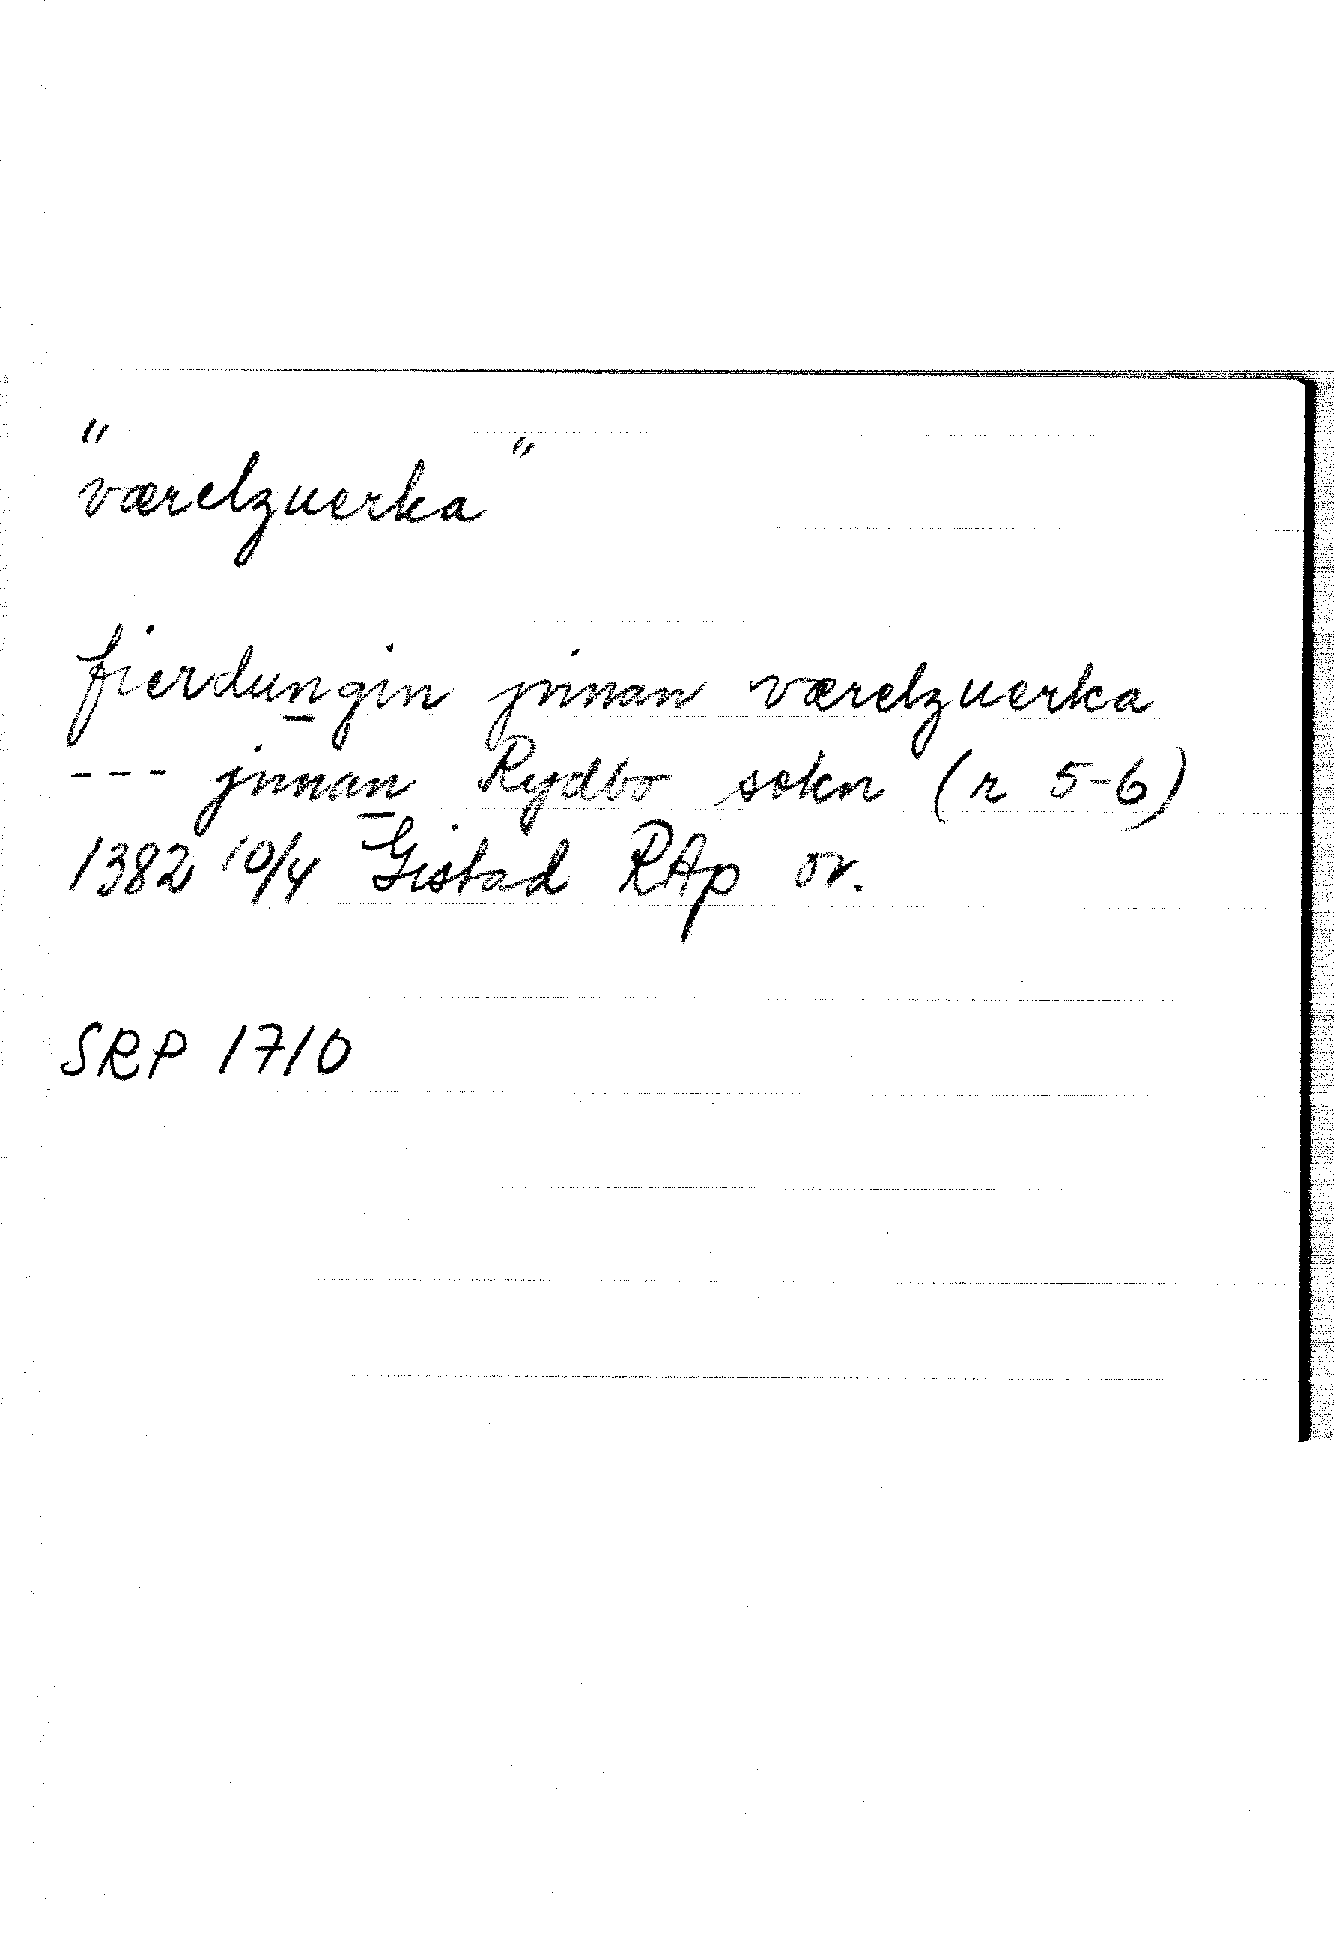 "værelzuerka"
fierdungin jnnan værelzuerka
--- jnnan Rydbo sokn (r 5-6)
1382 10/4 Gistad RAp or.
SRP 1710